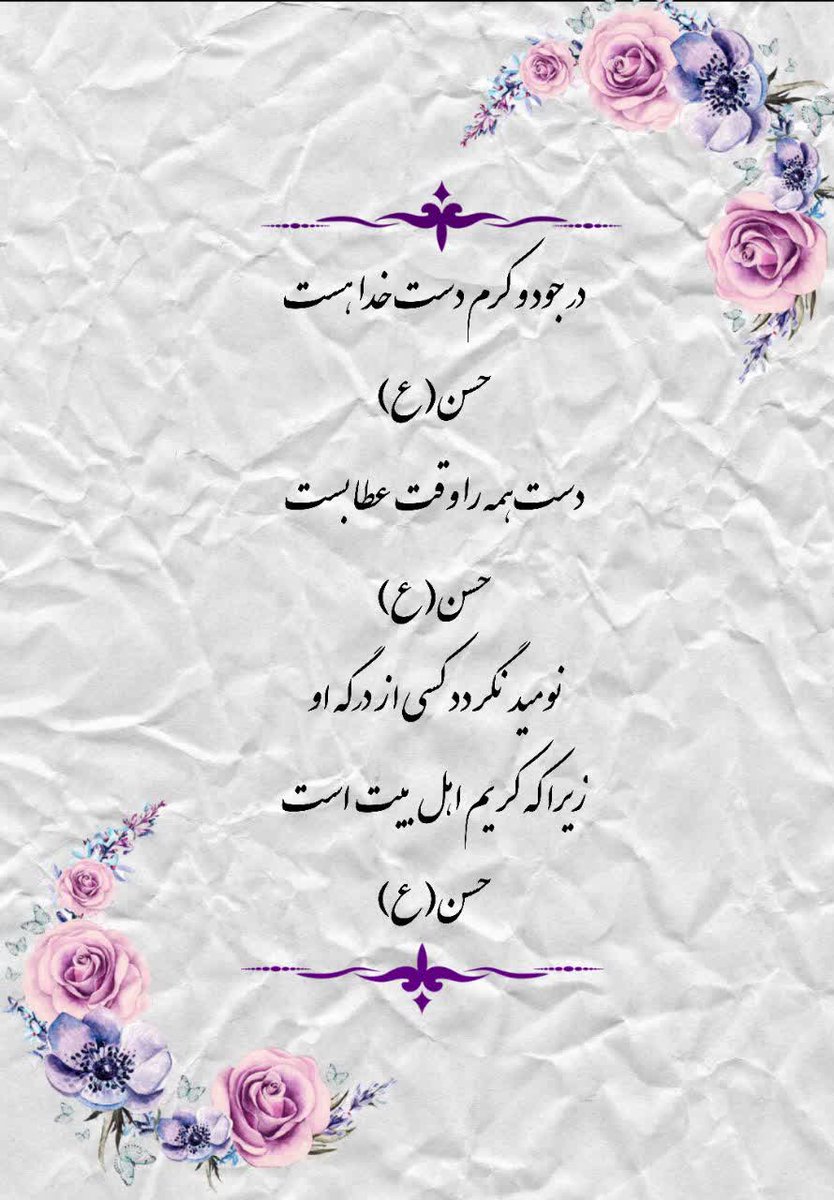 در جود و کرم دست خدا هست
حسن(ع)
دست همه را وقت عطا بست
حسن(ع)
نومید نگردد کسی از درگه او
زیرا که کریم اهل بیت است
حسن(ع)